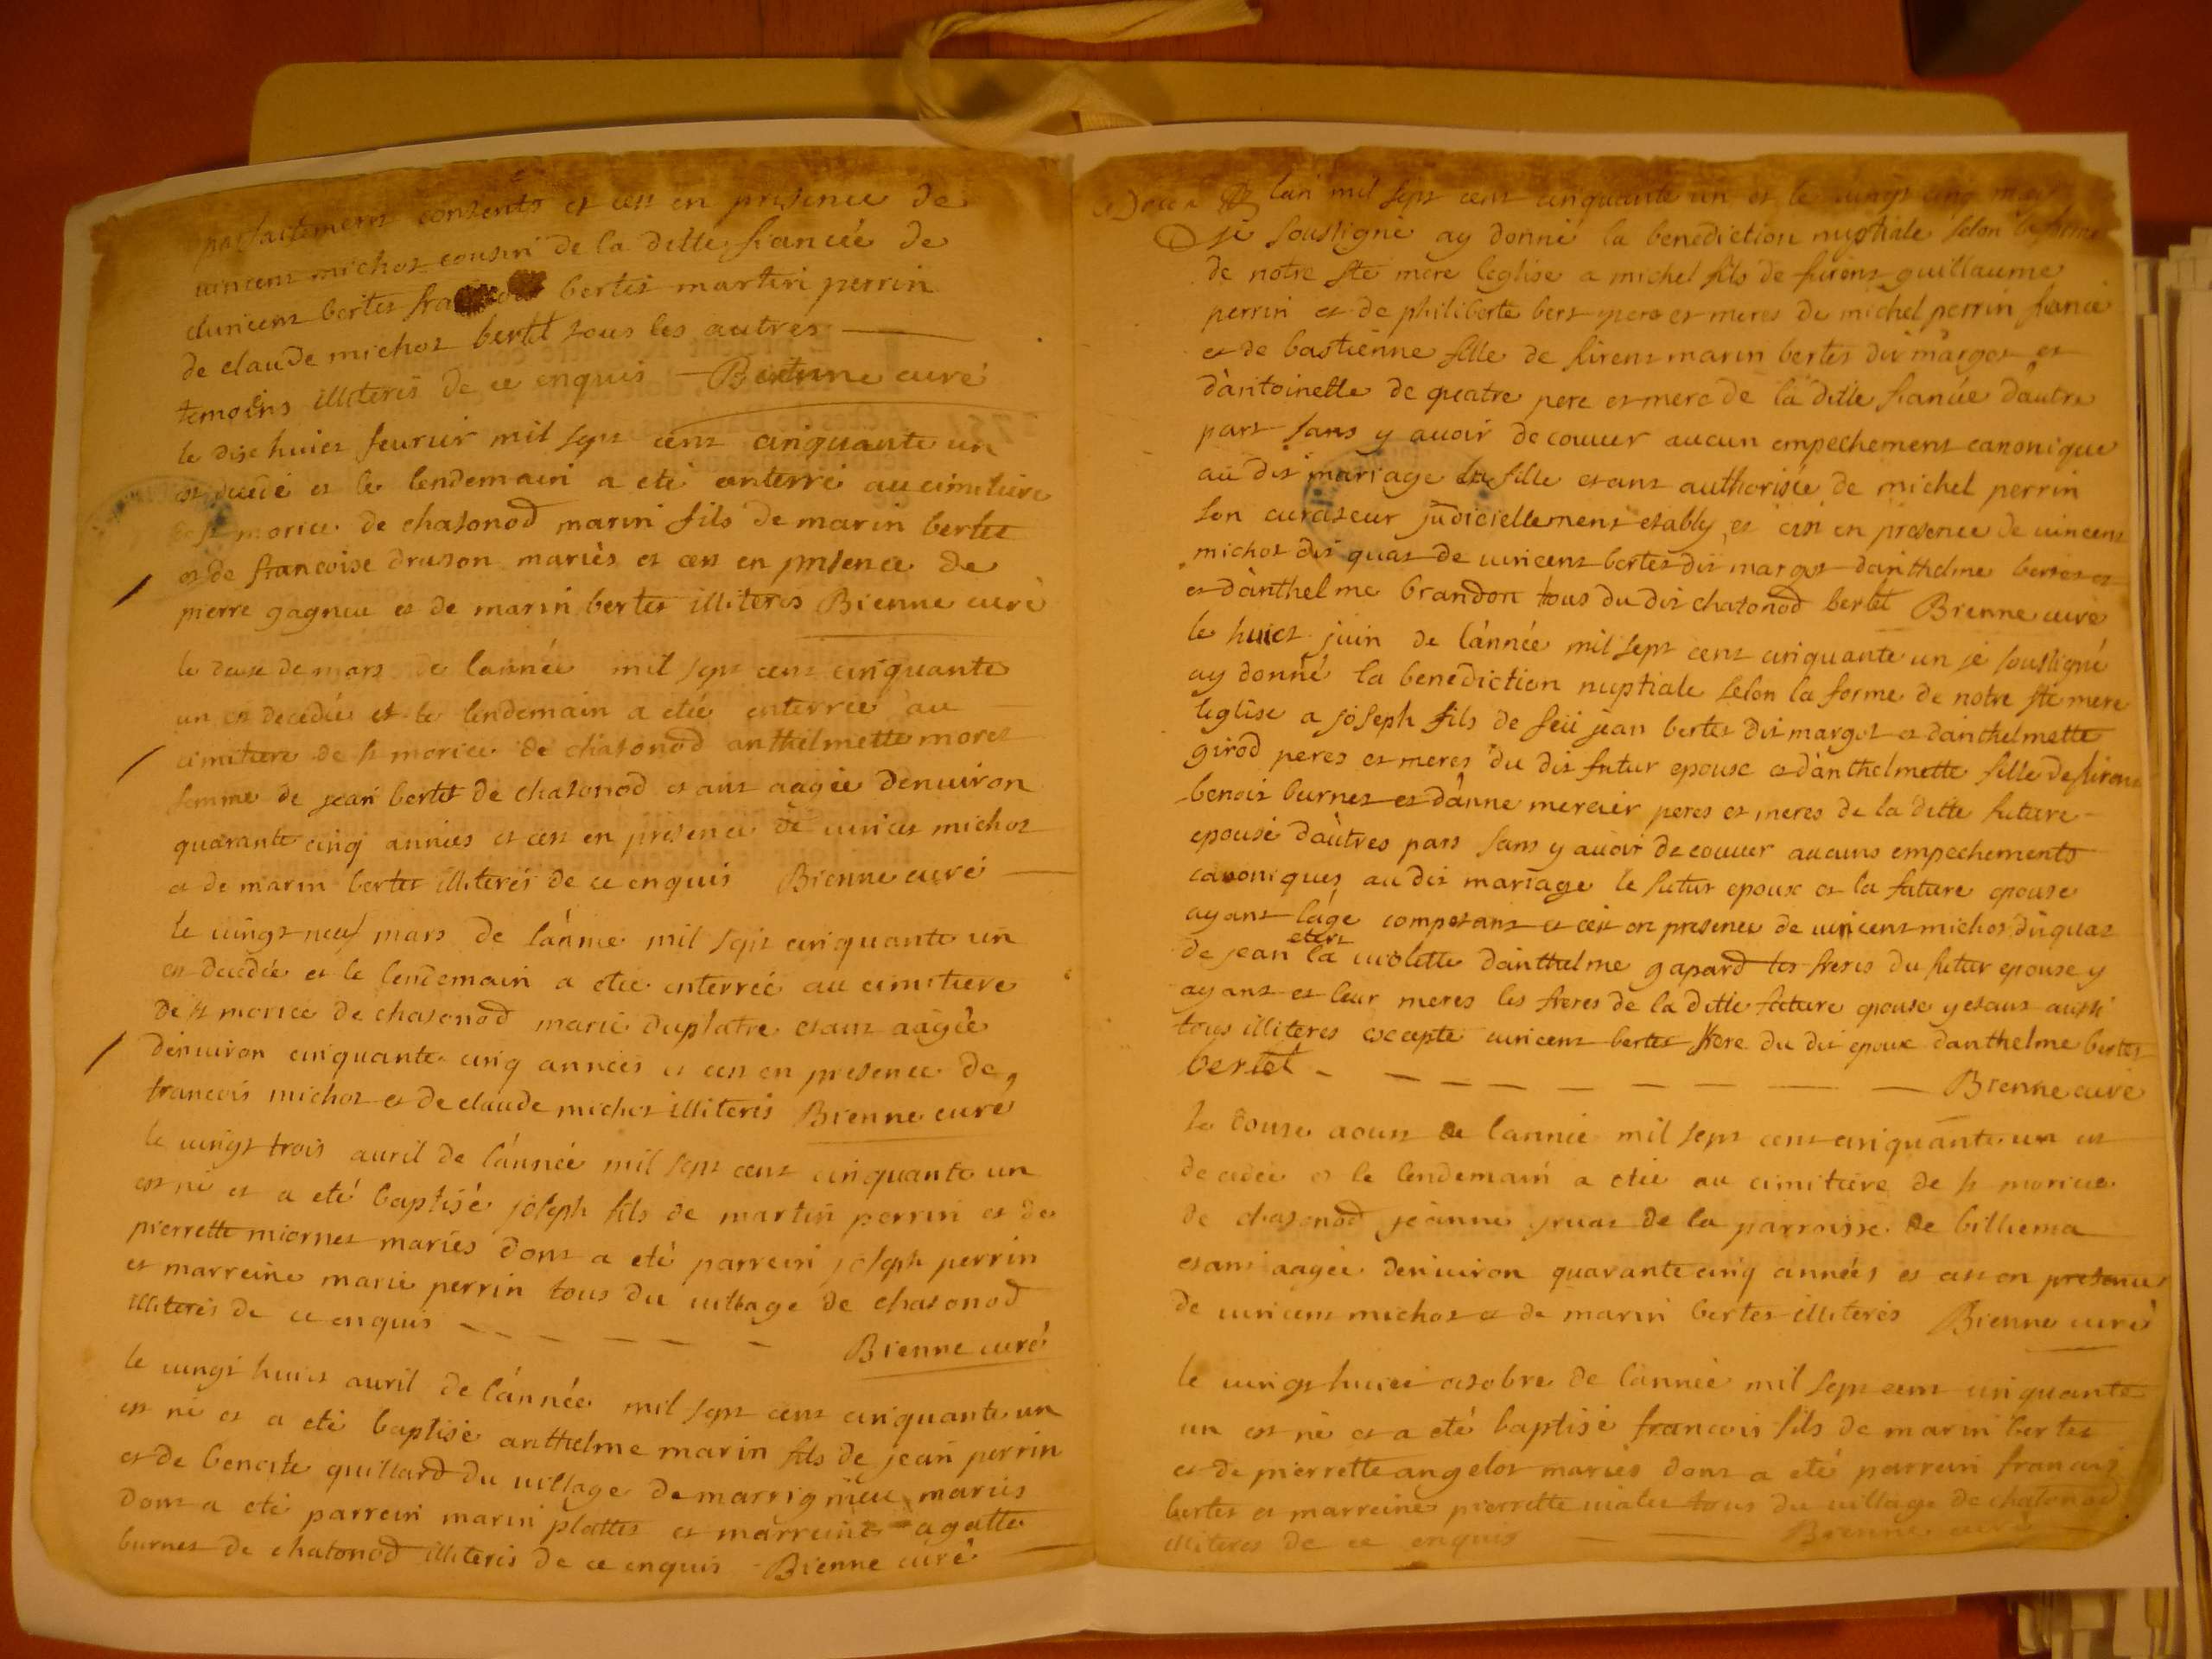 parfaitement consents et cest en presence de
vincent michot cousin de la ditte fiancée de
vincent bertet bertet martin perrin
de claude michot bertet tous les autres
temoins illiterés de ce enquis Bienne curé
le dixhuiet feuvrier mil sept cent cinquante un
est decedé et le lendemain a eté enterré au cimitiere
de st morice de chatonod marin fils de marin bertet
et de francoise druson mariés et cest en presence de
pierre gagneu et de marin bertet illiteres Bienne curé
le deuse de mars de lannée mil sept cent cinquante
un est decedée et le lendemain a etée enterrée au
cimitiere de st morice de chatonod anthelmette moret
femme de jean bertet de chatonod etant aagée denuiron
quarante cinq années et cest en presence de vincet michot
et de marin bertet illiterés de ce enquis Bienne curé
le vingt neuf mars de lánnée mil sept cinquante un
est decedée et le lendemain a etée enterrée au cimitiere
de st morice de chatonod marie duplatre etant aagée
denuiron cinquante cinq années et cest en presence de
francois michot et de claude michot illiterés Bienne curé
le vingt trois auril de lánnée mil sept cent cinquante un
est né et a eté baptisé joseph fils de martin perrin et de
pierrette miornet mariés dont a eté parrein joseph perrin
et marreine marie perrin tous du village de chatonod
illiterés de ce enquis Bienne curé
le vingt huict auril de lánnée mil sept cent cinquante un
est né et a eté baptisé anthelme marin fils de jean perrin
et de benoite guillard du village de marrignieu mariés
dont a eté parrein marin plattet et marreine agatte
burnet de chatonod illiterés de ce enquis Bienne curé
lan mil sept cent cinquante un et le vingt cinq may
je soussigné ay donné la benediction nuptiale selon la forme
de notre ste mere leglise a michel fils de guillaume
perrin et de philiberte bert pere et meres de michel perrin fiancé
et de bastienne fille de marin bertet dit margot et
dàntoinette de quatre pere et mere de la ditte fiancée dautre
part sans y auoir decouuer aucun empechement canonique
au dit mariage la fille etant authorisée de michel perrin
son curateur judiciellement etably et cest en presence de vincent
michot dit quat de vincent bertet dit margot danthelme bertet et
et dànthelme brandon tous du dit chatonod bertet Bienne curé
le huict juin de lánnée mil sept cent cinquante un je soussigné
ay donné la benediction nuptiale selon la forme de notre ste mere
leglise a joseph fils de feu jean bertet dit margot et danthelmette
girod peres et meres du dit futur epouse et dànthelmette fille de
benoit burnet et dànne mercier peres et meres de la ditte future
epouse dàutres part sans y auoir decouuer aucuns empechements
canoniques au dit mariage le futur epoux et la future epouse
ayant láge competant et cest en presence de vincent michot dit quat
de jean la violette danthelme gapard les freres du futur epouse y
etant
ayant et leur meres les freres de la ditte future epouse y etant aussi
tous illiteres excepte vincent bertet frere du dit epoux danthelme bertet
bertet Bienne curé
le aoust de lannée mil sept cent cinquante un est
decedée et le lendemain a etée au cimitiere de st morice
de chatonod jeanne de la parroisse de billiema
etant aagée denuiron quarante cinq années et cest en presence
de vincent michot et de marin bertet illiterés Bienne curé
le vingt huict octobre de lánnée mil sept cent cinquante
un est né et a eté baptisé francois fils de marin bertet
et de pierrette angelot mariés dont a eté parrein francois
bertet et marreine pierrette tous du village de chatonod
illiteres de ce enquis Bienne curé